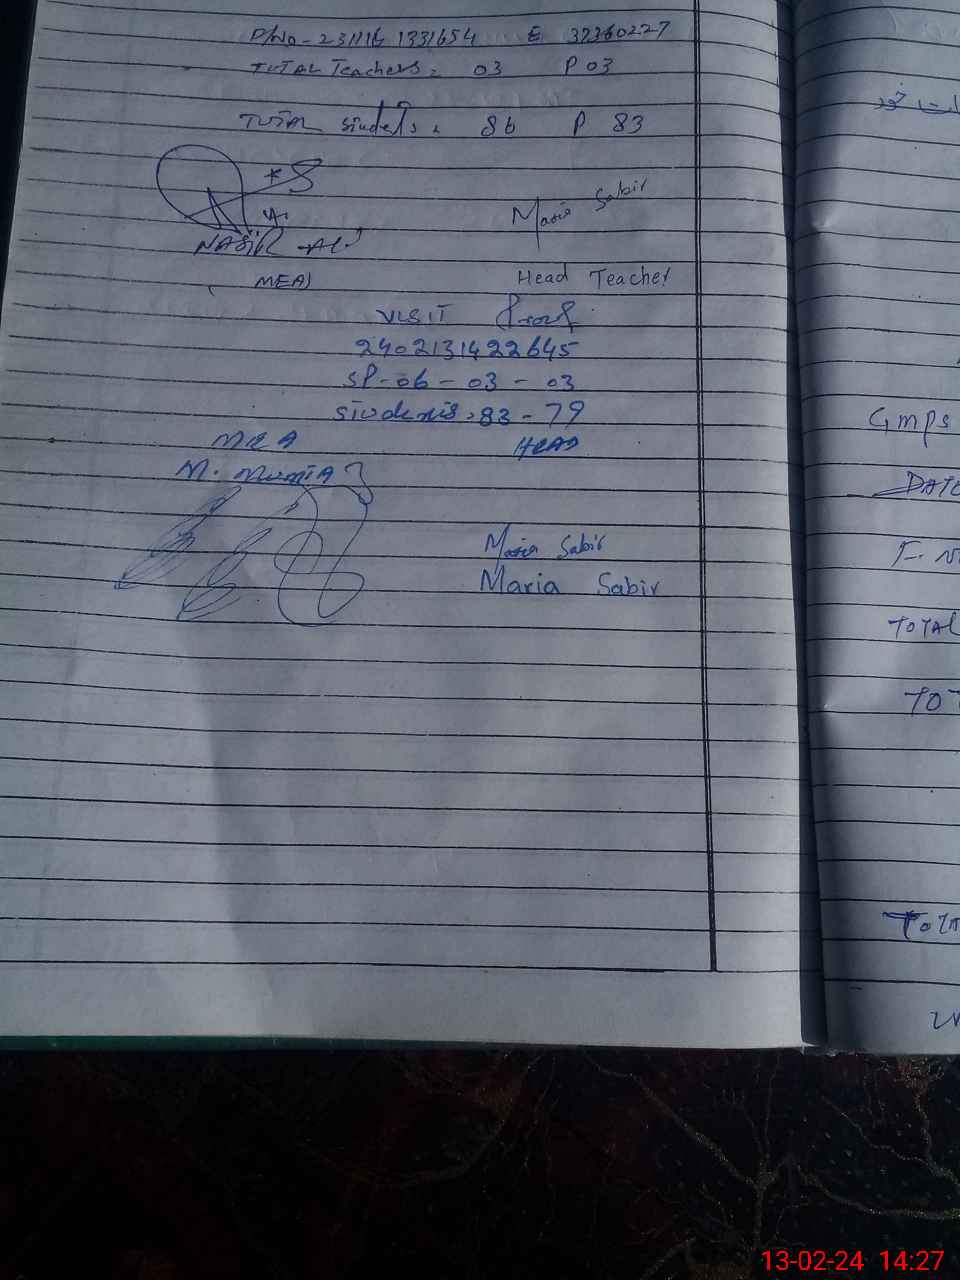 P/No - 231116 1331654 E 37360227
TOTAL Teachers = 03 P 03
TOTAL Students = 86 P 83
NASIR ALI
Maria Sabir
MEA
Head Teacher
VISIT Proof
2402131422645
SP - 06 - 03 - 03
Students = 83 - 79
MEA HEAD
M.
Maria Sabir
Maria Sabir
خود
GMPS
DATE
TOTAL
TOT
TOTA
13-02-24 14:27